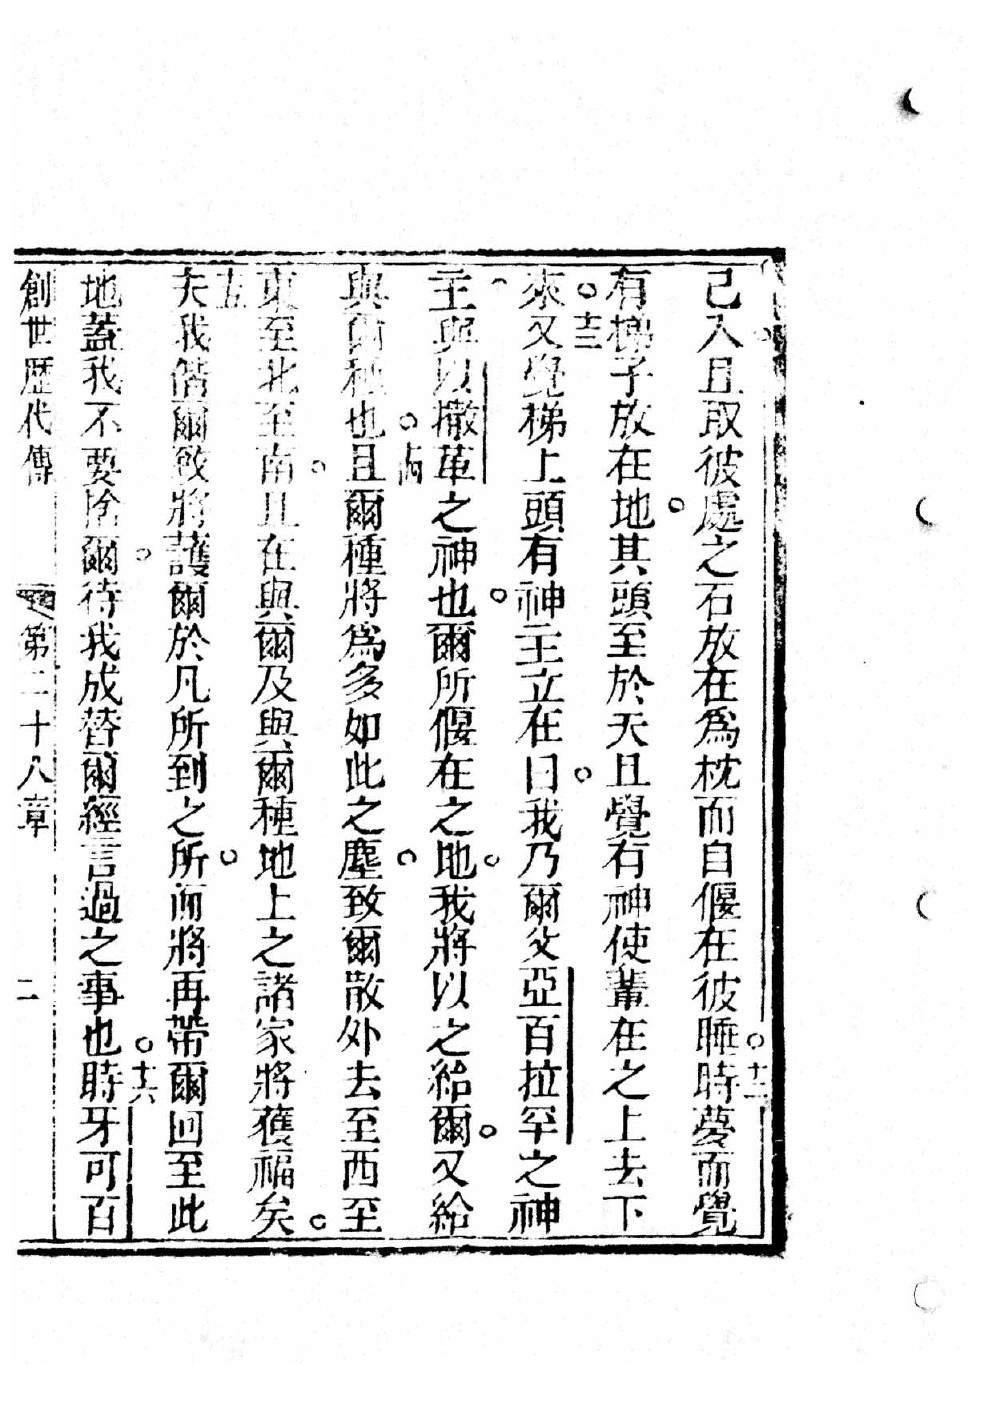 己入且取彼處之石放在為枕而自偃在彼睡。十二時夢而覺
有梯子放在地。其頭至於天。且覺有神使輩在之上去下
來。十三又覺梯上頭有神主立在曰我乃爾父亞百拉罕之神
主與以撒革之神也。爾所偃在之地。我將以之給爾。又給
與爾種也。十四且爾種將為多如此之塵。致爾散外去至西至
東至北至南。且在與爾及與爾種地上之諸家將獲福矣。
十五夫我偕爾致將護爾於凡所到之所。而將再帶爾回至此
地蓋我不要捨爾。待我成替爾經言過之事也。十六時牙可百
創世歷代傳 第二十八章 二